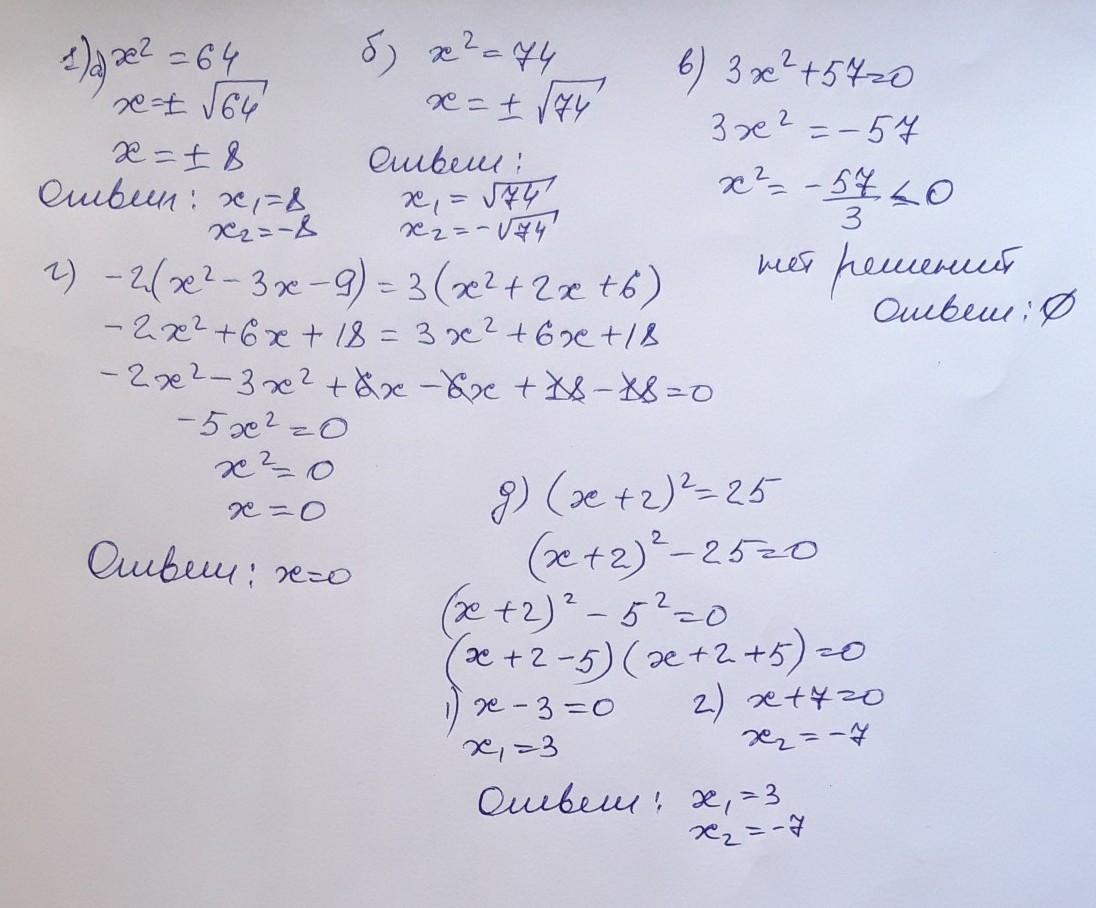 1) а) x² = 64
x = ± √64
x = ± 8
Ответ: x₁ = 8
x₂ = -8
б) x² = 74
x = ± √74
Ответ:
x₁ = √74
x₂ = -√74
в) 3x² + 57 = 0
3x² = -57
x² = -57/3 < 0
нет решений
Ответ: ∅
г) -2(x² - 3x - 9) = 3(x² + 2x + 6)
-2x² + 6x + 18 = 3x² + 6x + 18
-2x² - 3x² + 6x - 6x + 18 - 18 = 0
-5x² = 0
x² = 0
x = 0
Ответ: x = 0
д) (x + 2)² = 25
(x + 2)² - 25 = 0
(x + 2)² - 5² = 0
(x + 2 - 5)(x + 2 + 5) = 0
1) x - 3 = 0 2) x + 7 = 0
x₁ = 3 x₂ = -7
Ответ: x₁ = 3
x₂ = -7